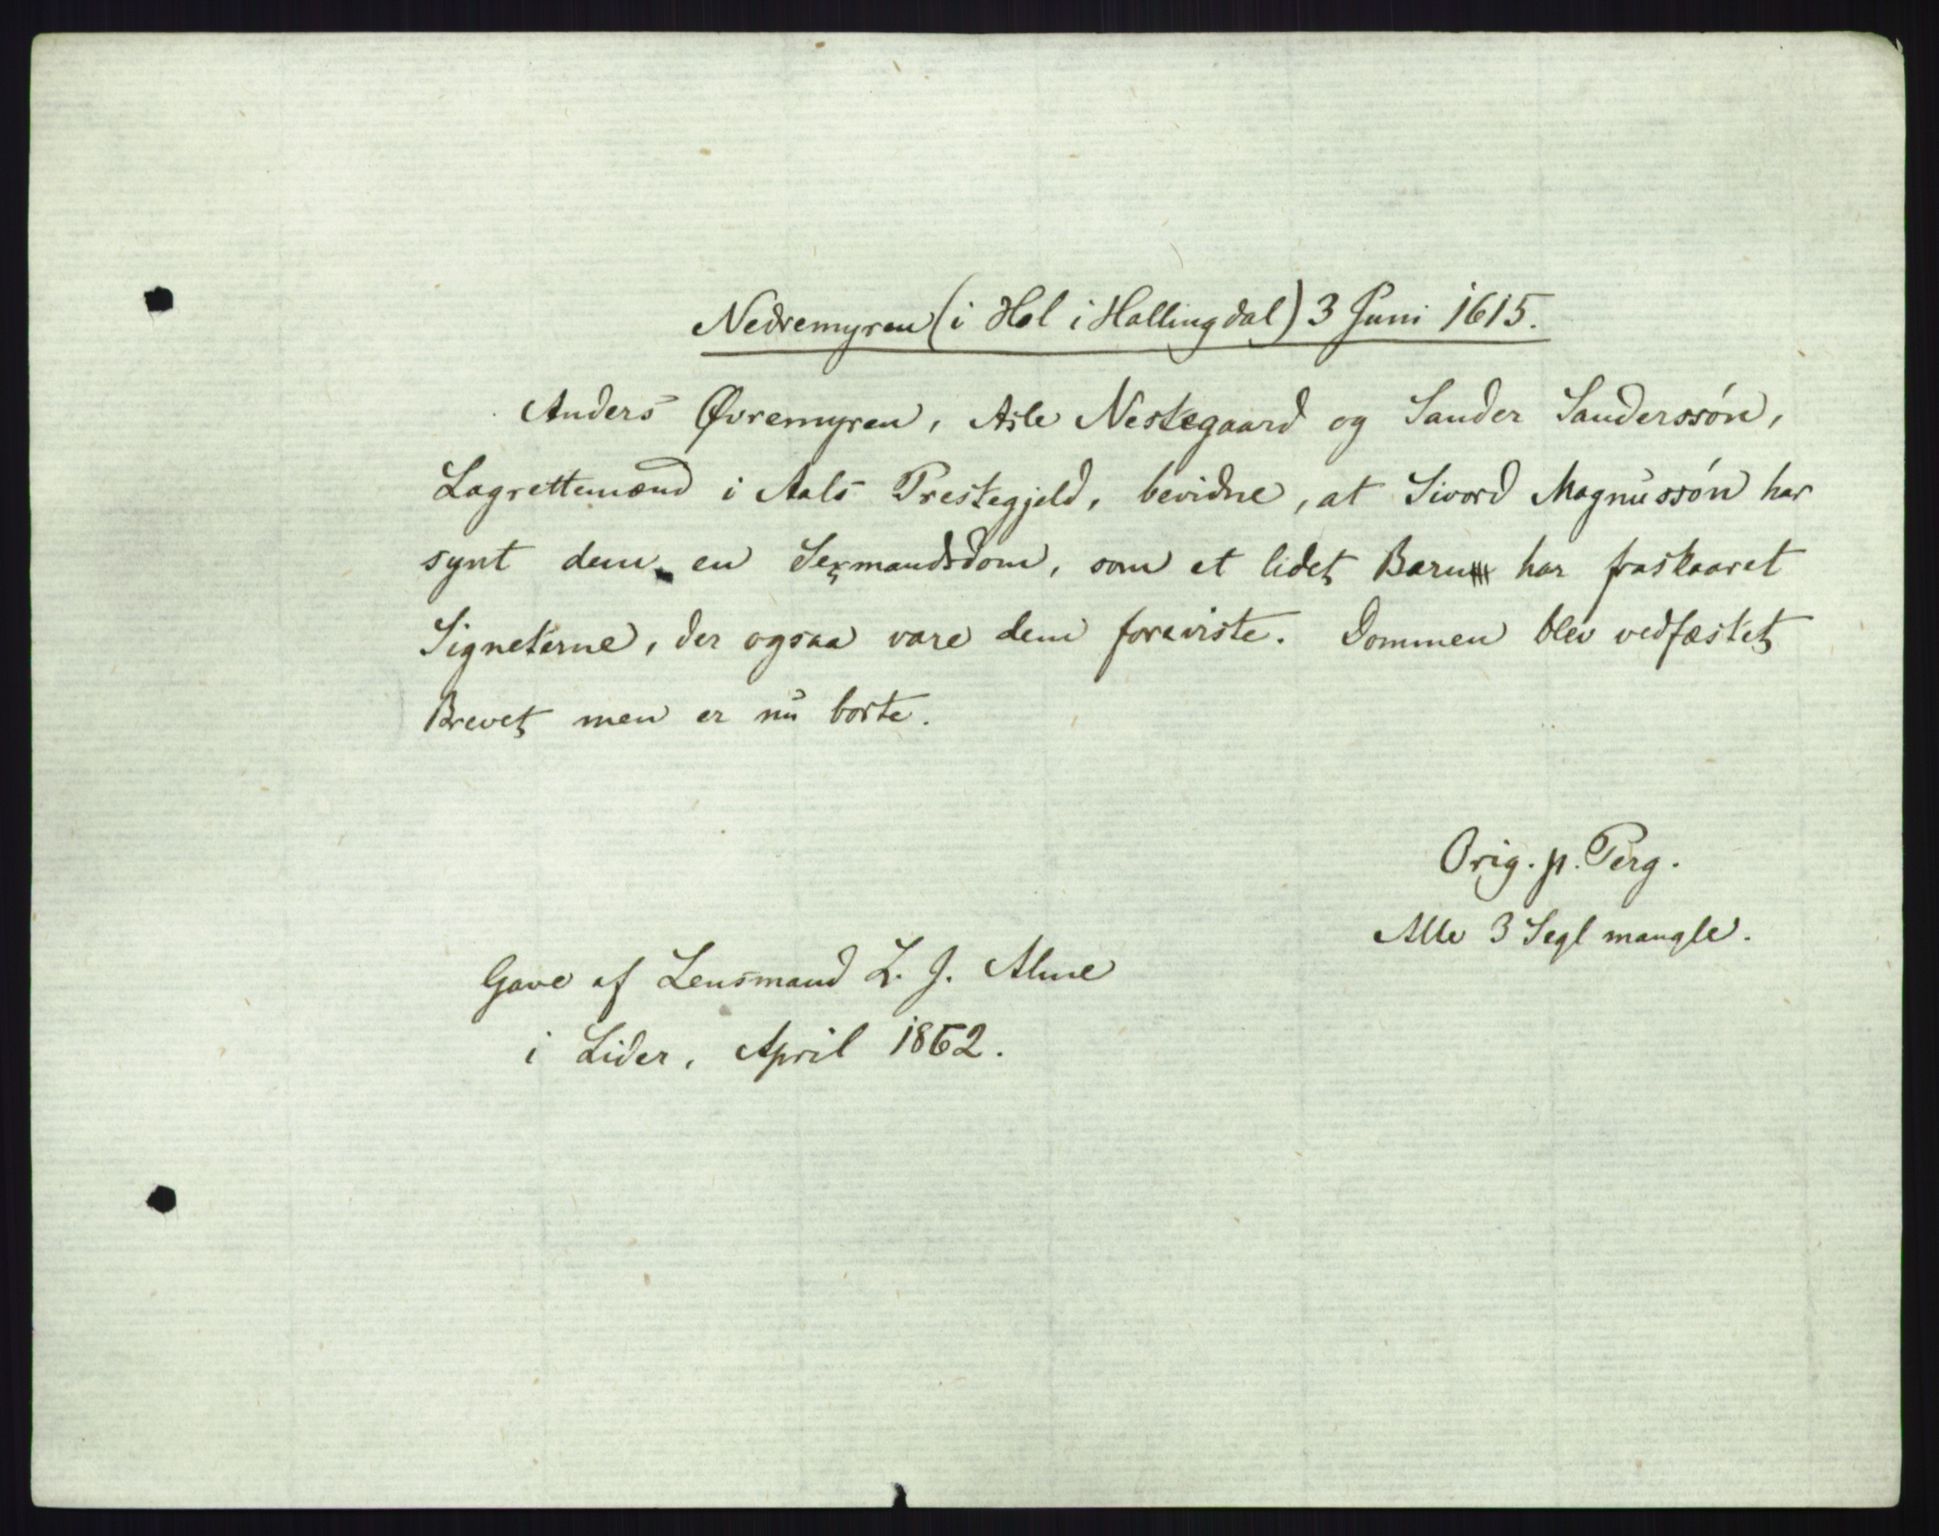 Nedremyren (i Hol i Hallingdal) 3 Juni 1615.
Anders Øvremyren, Asle Neskegaard og Sander Sanderssón,
Lagrettemænd i Aals Prestegjeld, bevidne, at Sivord Magnussón har
synt dem en Sexmandsdom, som et lidet Barn har fraskaaret
Signeterne, der ogsaa vare dem foreviste. Dommen blev vedfæstet
Brevet men er nu borte.
Orig. p. Perg.
Alle 3 Segl mangle.
Gave af Lensmand L. J. Alme
i Lider, April 1862.